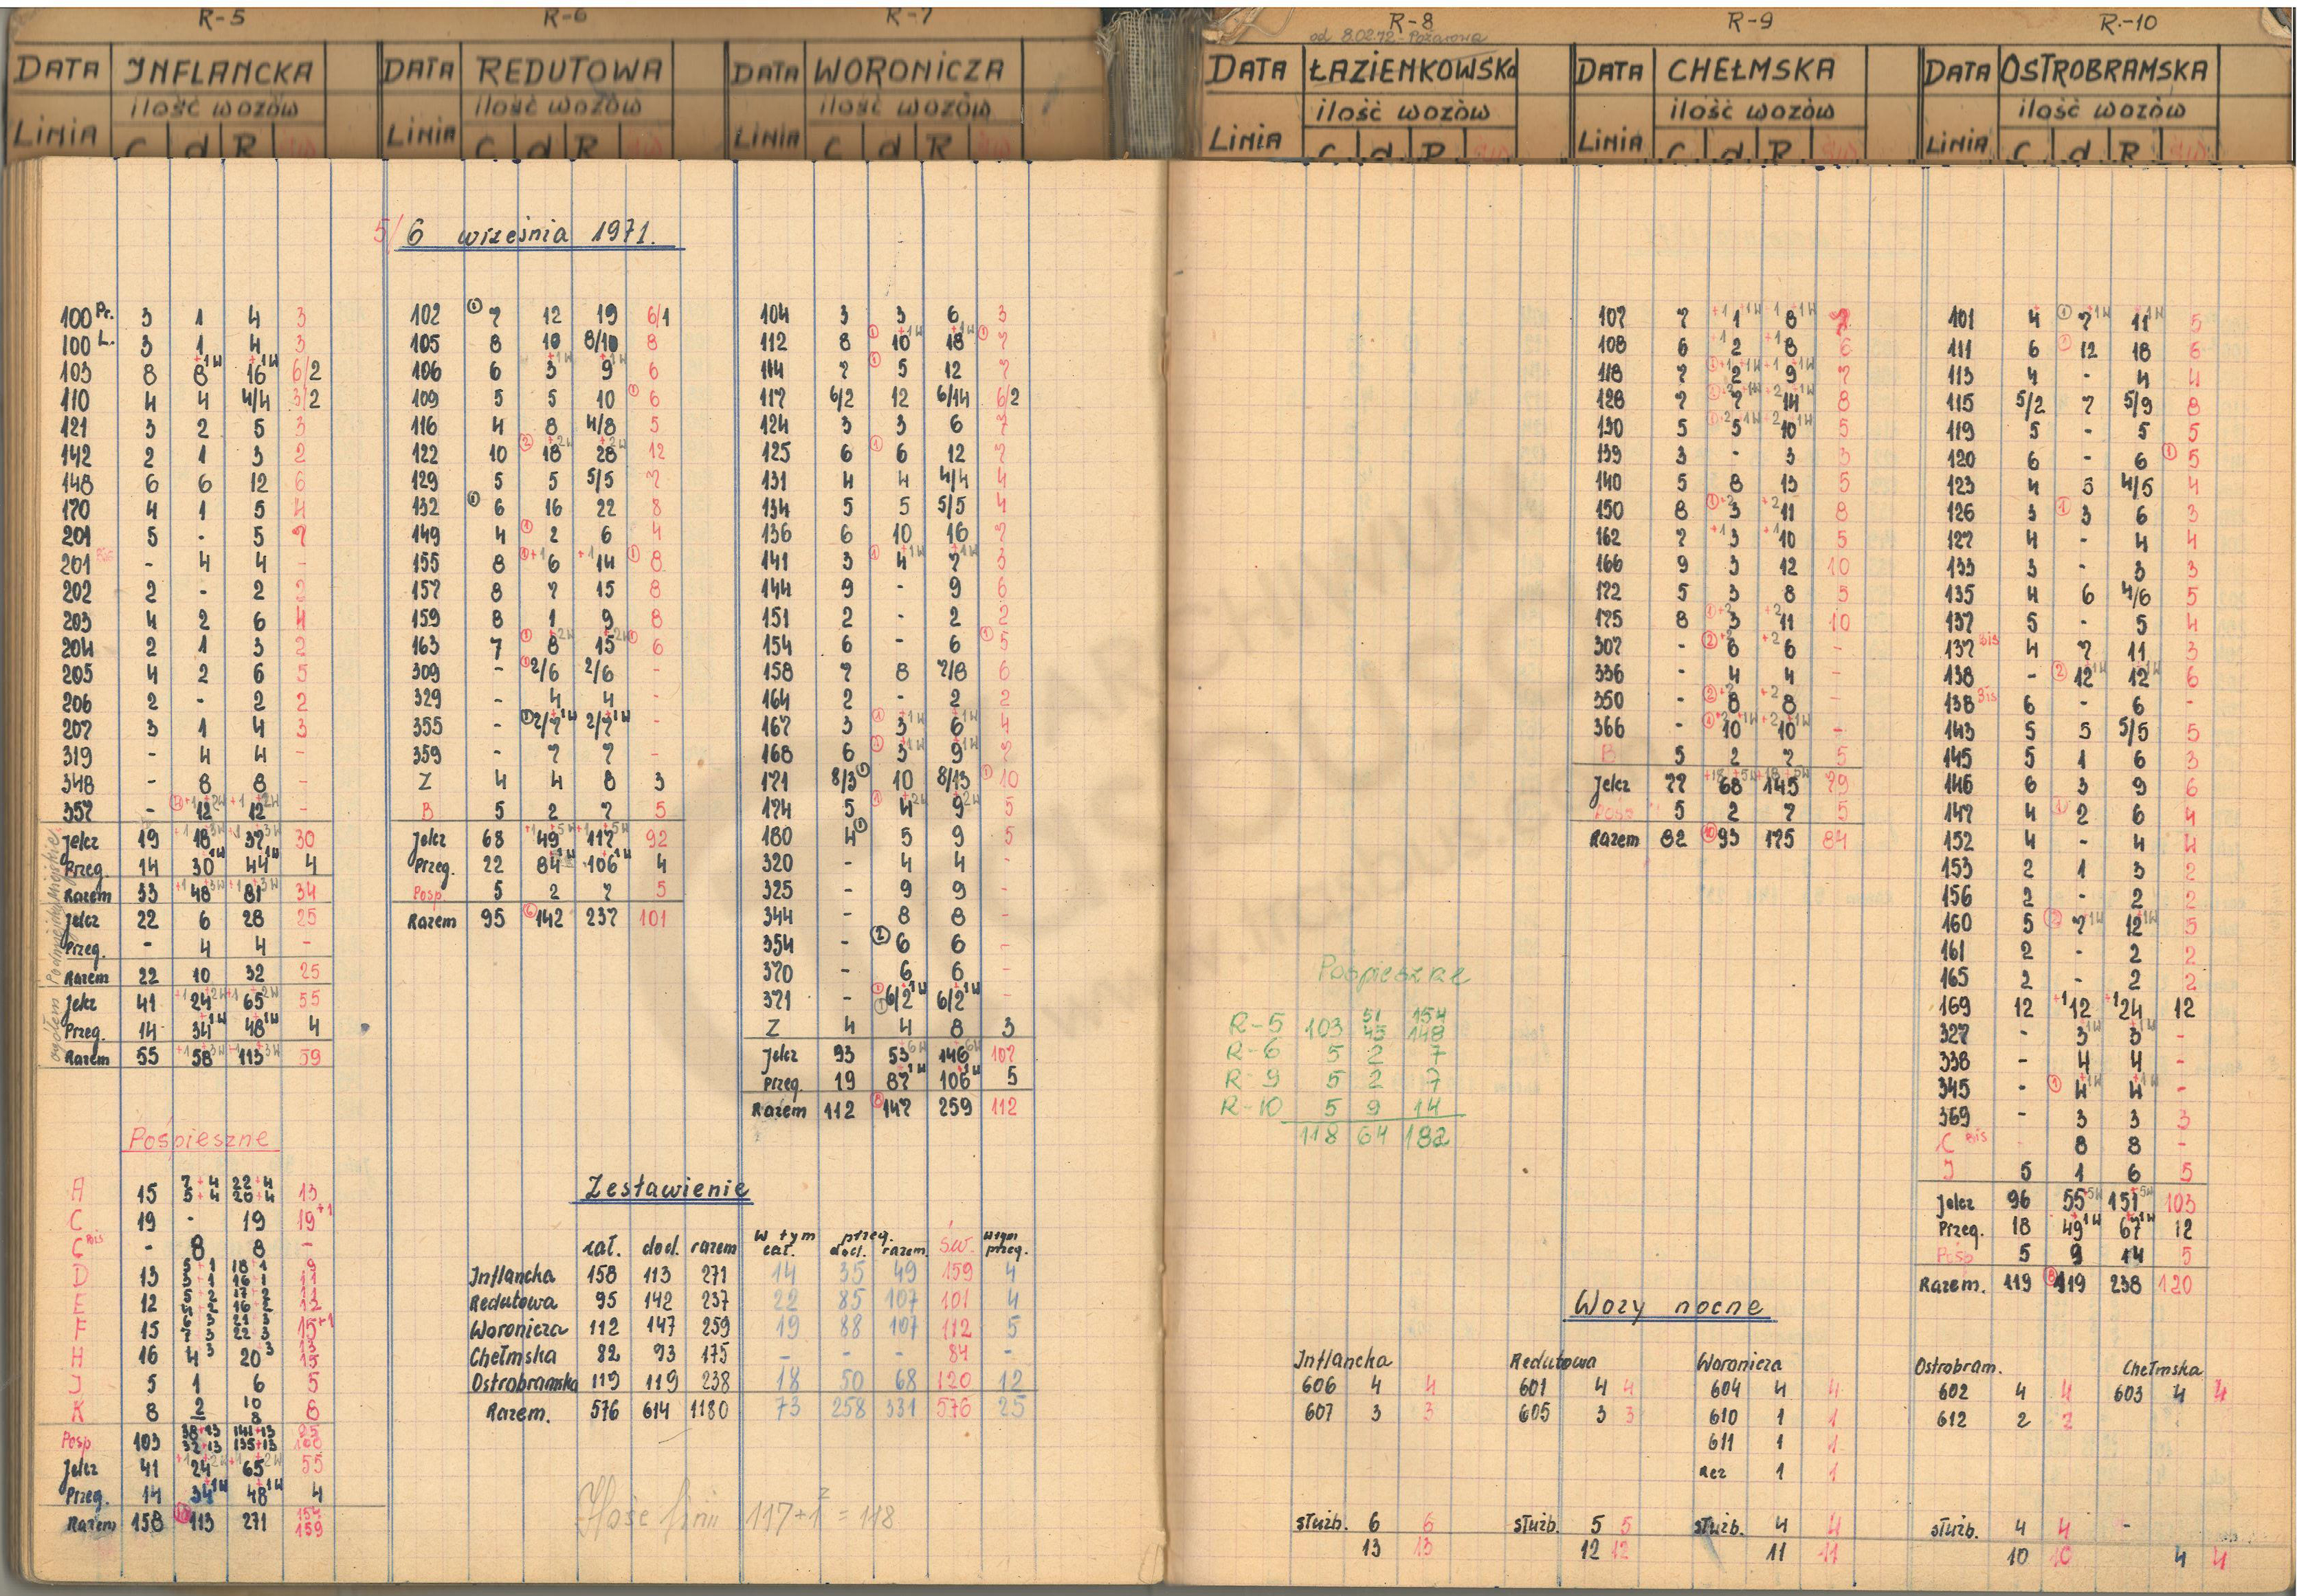 R-5
DATA INFLANCKA
ilość wozów
LINIA C d R
R-6
DATA REDUTOWA
ilość wozów
LINIA C d R
R-7
DATA WORONICZA
ilość wozów
LINIA C d R
R-8
od 8.02.72 - Pożarowa
DATA ŁAZIENKOWSKA
ilość wozów
LINIA C d R
R-9
DATA CHEŁMSKA
ilość wozów
LINIA C d R
R-10
DATA OSTROBRAMSKA
ilość wozów
LINIA C d R
5/6 września 1971.
100 Pr. 3 1 4 3
100 L. 3 1 4 3
103 8 8+1W 16+1W 6/2
110 4 4 4/4 3/2
121 3 2 5 3
142 2 1 3 2
148 6 6 12 6
170 4 1 5 4
201 5 - 5 7
201 Bis - 4 4 -
202 2 - 2 2
203 4 2 6 4
204 2 1 3 2
205 4 2 6 5
206 2 - 2 2
207 3 1 4 3
319 - 4 4 -
348 - 8 8 -
357 - 12 12 -
Jelcz 19 18 37 30
Przeg 14 30 44 4
Razem 33 48 81 34
Jelcz 22 6 28 25
Przeg. - 4 4 -
Razem 22 10 32 25
Jelcz 41 24 65 55
Przeg. 14 34 48 4
Razem 55 58 113 59
Pośpieszne
A 15 7+4 22+4
5+4 20+4 13
C 19 - 19 19+1
C Bis - 8 8 -
D 13
E 12
F 15
H 16 4 3 20 3
J 5 1 6 5
K 8 2 10 8
8
Posp 103 38+13 141+13
32+13 135+13
Jelcz 41 24 65 55
Przeg. 14 34 48 4
Razem 158 113 271 154
159
102 7 12 19 6/1
105 8 10 8/10 8
106 6 3 9 6
109 5 5 10 6
116 4 8 4/8 5
122 10 18+2W 28+2W 12
129 5 5 5/5 7
132 6 16 22 8
149 4 2 6 4
155 8 6 14 8
157 8 7 15 8
159 8 1 9 8
163 7 8 15 6
309 - 2/6 2/6 -
329 - 4 4 -
355 - 2/7 2/7 -
359 - 7 7 -
Z 4 4 8 3
B 5 2 7 5
Jelcz 68 49 117 92
Przeg. 22 84 106 4
Posp 5 2 7 5
Razem 95 142 237 101
104 3 3 6 3
112 8 10+1W 18+1W 7
114 7 5 12 7
117 6/2 12 6/14 6/2
124 3 3 6 7
125 6 6 12 7
131 4 4 4/4 4
134 5 5 5/5 4
136 6 10 16 7
141 3 4+1W 7+1W 3
144 9 - 9 6
151 2 - 2 2
154 6 - 6 5
158 7 8 7/8 6
164 2 - 2 2
167 3 3+1W 6+1W 4
168 6 3+1W 9+1W 7
171 8/3 10 8/13 10
174 5 4+2W 9+2W 5
180 4 5 9 5
320 - 4 4 -
325 - 9 9 -
344 - 8 8 -
354 - 6 6 -
370 - 6 6 -
371 - 6/2 6/2 -
Z 4 4 8 3
Jelcz 93 53+6W 146+6W 107
Przeg. 19 87+1W 106+1W 5
Razem 112 147 259 112
Zestawienie
cał. dod. razem w tym cał. przeg. dod. razem św. w tym przeg.
Inflancka 158 113 271 14 35 49 159 4
Redutowa 95 142 237 22 85 107 101 4
Woronicza 112 147 259 19 88 107 112 5
Chełmska 82 93 175 - - - 84 -
Ostrobramska 119 119 238 18 50 68 120 12
Razem. 576 614 1180 73 258 331 576 25
Ilość linii 117+1 Z = 118
Pośpieszne
51 154
R-5 103 45 148
R-6 5 2 7
R-9 5 2 7
R-10 5 9 14
118 64 182
107 7 1 8 7
108 6 2 8 6
118 7 2 9 7
128 7 7 14 8
130 5 5 10 5
139 3 - 3 3
140 5 8 13 5
150 8 3 11 8
162 7 3 10 5
166 9 3 12 10
172 5 3 8 5
175 8 3 11 10
307 - 6 6 -
336 - 4 4 -
350 - 8 8 -
366 - 10 10 -
B 5 2 7 5
Jelcz 77 68 145 79
Posp 5 2 7 5
Razem 82 93 175 84
101 4 7+1W 11+1W 5
111 6 12 18 6
113 4 - 4 4
115 5/2 7 5/9 8
119 5 - 5 5
120 6 - 6 5
123 4 5 4/5 4
126 3 3 6 3
127 4 - 4 4
133 3 - 3 3
135 4 6 4/6 5
137 5 - 5 4
137 Bis 4 7 11 3
138 - 12+1W 12+1W 6
138 Bis 6 - 6 -
143 5 5 5/5 5
145 5 1 6 3
146 6 3 9 6
147 4 2 6 4
152 4 - 4 4
153 2 1 3 2
156 2 - 2 2
160 5 7+1W 12+1W 5
161 2 - 2 2
165 2 - 2 2
169 12 +1 12 +1 24 12
327 - 3+1W 3+1W -
338 - 4 4 -
345 - 4+1W 4+1W -
369 - 3 3 3
C Bis 8 8 -
J 5 1 6 5
Jelcz 96 55+5W 151+5W 103
Przeg. 18 49+1W 67+1W 12
Posp 5 9 14 5
Razem. 119 119 238 120
Wozy nocne
Inflancka
606 4 4
607 3 3
służb. 6 6
13 13
Redutowa
601 4 4
605 3 3
służb. 5 5
12 12
Woronicza
604 4 4
610 1 1
611 1 1
Rez 1 1
służb. 4 4
11 11
Ostrobram.
602 4 4
612 2 2
służb. 4 4
10 10
Chełmska
603 4 4
-
4 4